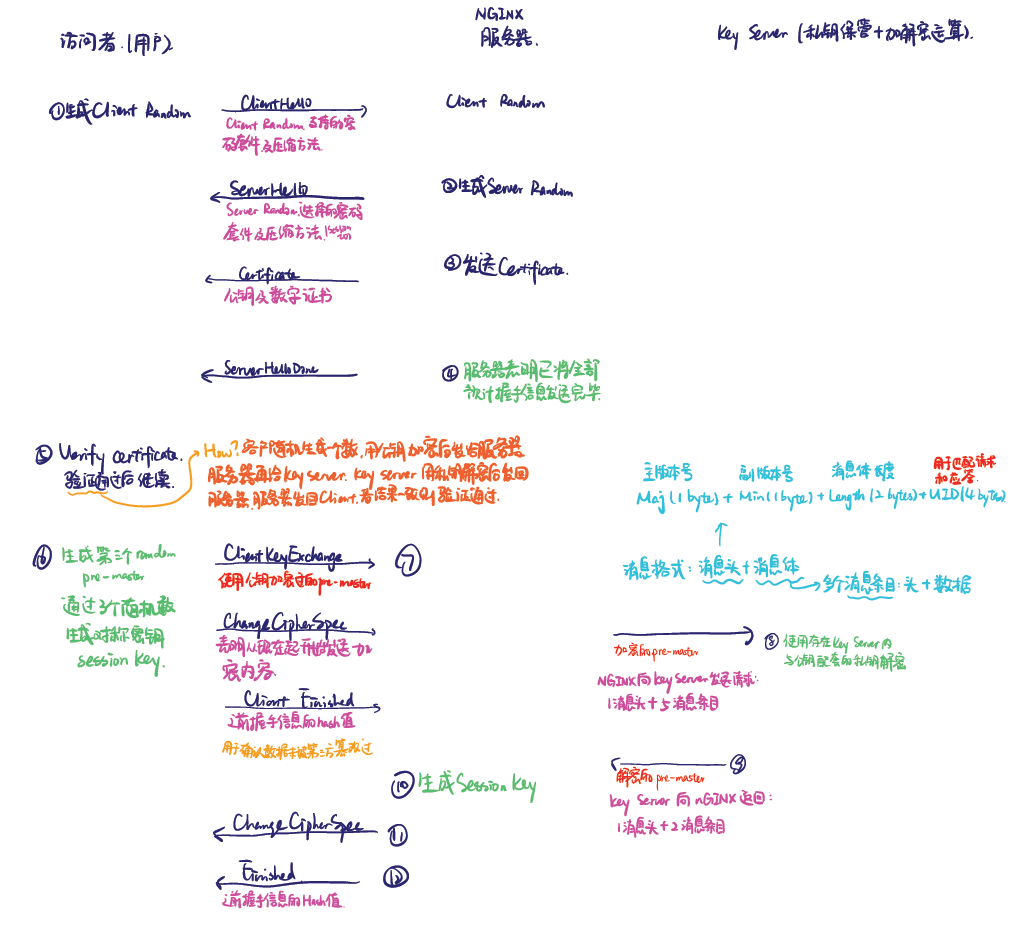 访问者.(用户)
NGINX
服务器.
Key Server (私钥保管+加解密运算).
①生成Client Random
ClientHello
Client Random
Client Random 支持的密
码套件及压缩方法.
ServerHello
②生成Server Random
Server Random.选择的密码
套件及压缩方法.
Certificate
③发送Certificate.
公钥及数字证书
ServerHelloDone
④服务器表明已将全部
预计握手信息发送完毕.
⑤Verify certificate.
验证通过后继续.
How?客户随机生成一个数,用公钥加密后发给服务器
服务器再给Key server. Key server 用私钥解密后发回
服务器.服务器发回Client.若结果一致则验证通过.
主版本号
副版本号
消息体长度
用于匹配请求
和应答.
Maj(1 byte)+Min(1 byte)+Length(2 bytes)+UID(4 bytes)
消息格式:消息头+消息体
多个消息条目:头+数据
⑥生成第三个random
pre-master
通过3个随机数
生成对称密钥
session key.
ClientKeyExchange
⑦
使用公钥加密过的pre-master
ChangeCipherSpec
表明从现在起开始发送加
密内容.
Client Finished
之前握手信息的hash值
用于确认数据未被第三方篡改过
加密的pre-master
⑧使用存在Key Server内
与公钥配套的私钥解密
NGINX向Key Server发送请求:
1消息头+5消息条目
⑨
解密的pre-master
Key Server 向nGINX返回:
1消息头+2消息条目
⑩生成Session Key
ChangeCipherSpec
⑪
Finished
⑫
之前握手信息的Hash值.